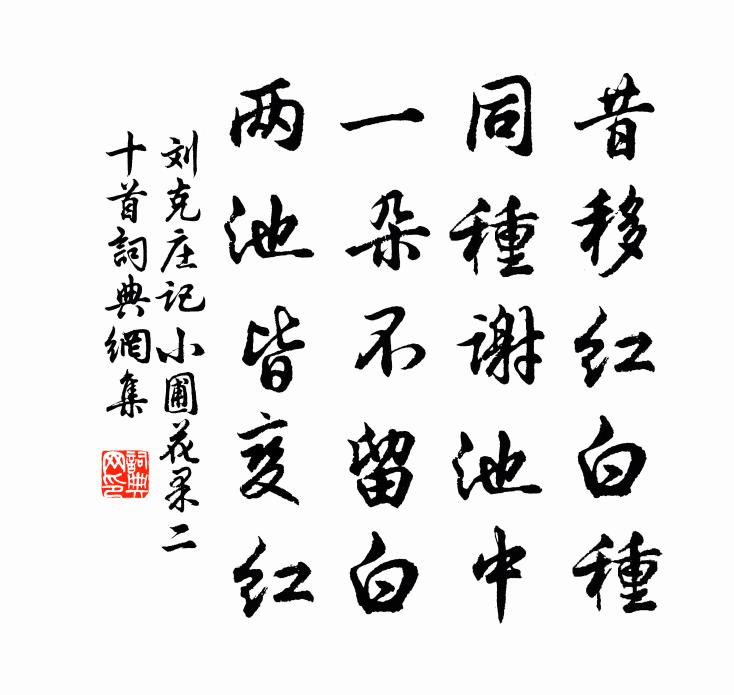 昔移红白種
同種谢池中
一朵不留白
两池皆变红
刘克庄记小圃花果二
十首詞典網集
詞典网印